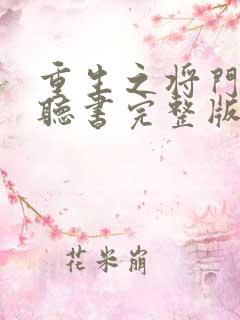 重生之将门
聽書完整版
花米崩